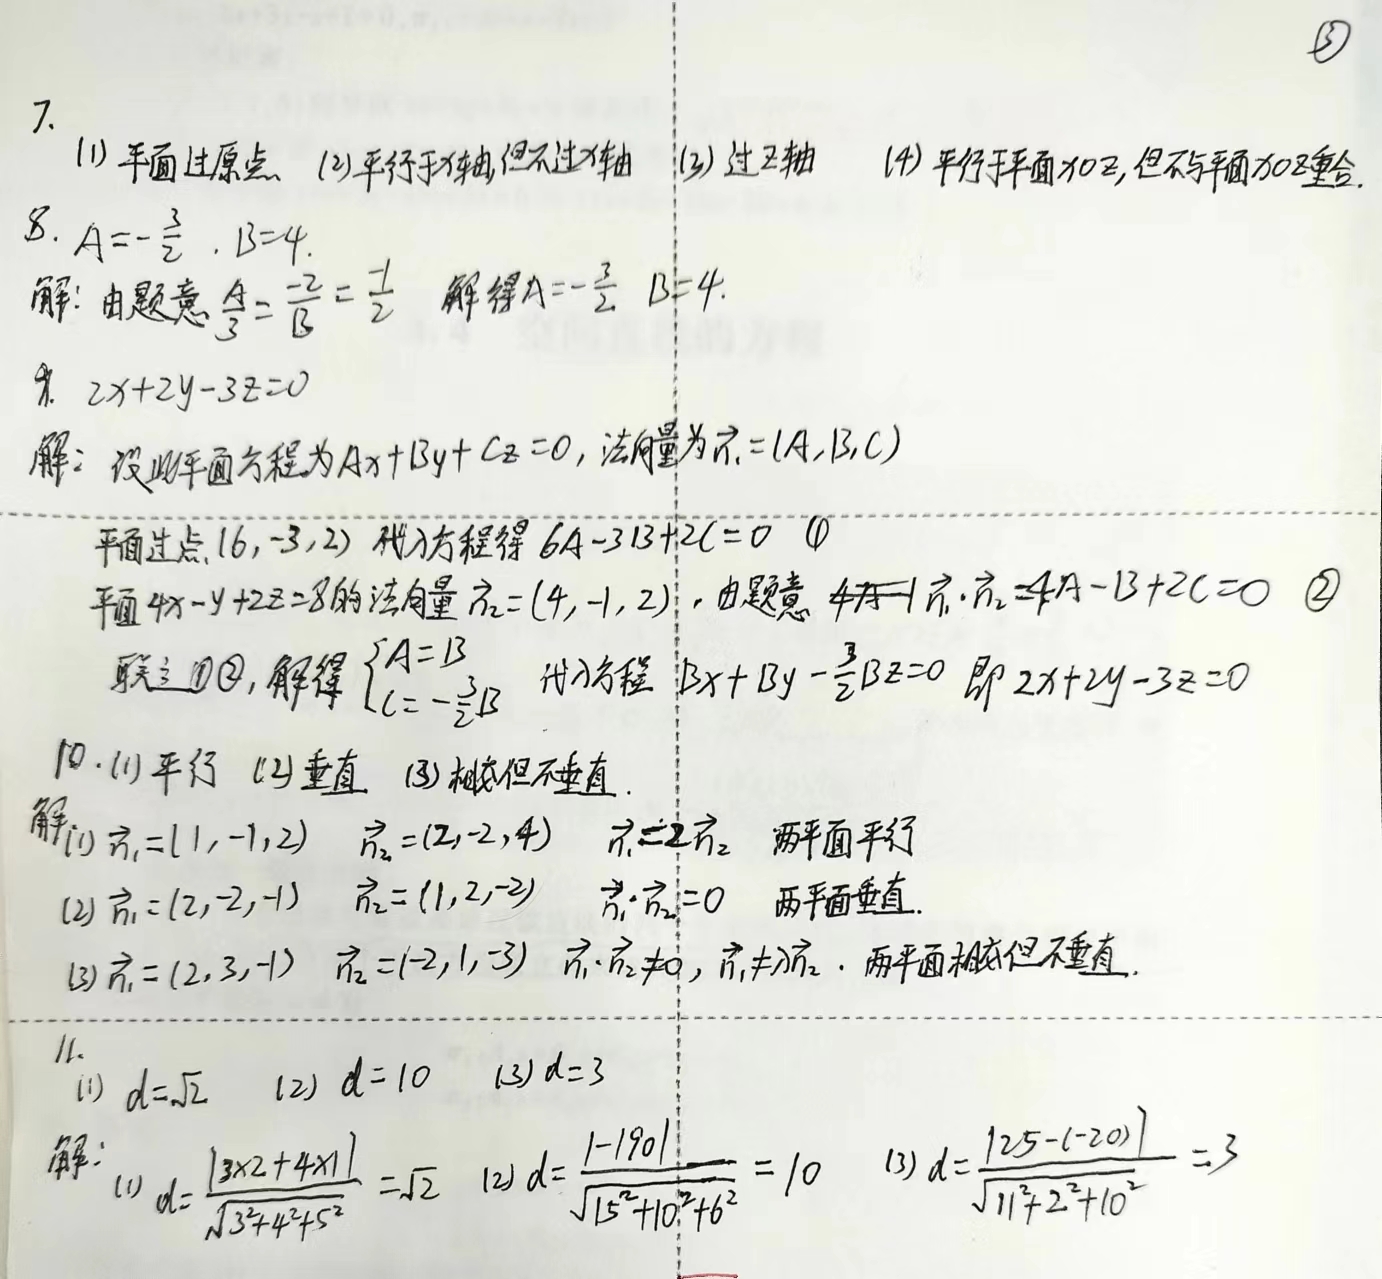 ③
7.
(1) 平面过原点 (2) 平行于x轴,但不过x轴 (3) 过z轴 (4) 平行于平面xOz,但不与平面xOz重合.
8. A=-3/2 . B=4.
解: 由题意 A/3 = -2/B = -1/2 解得A=-3/2 B=4.
9. 2x+2y-3z=0
解: 设此平面方程为Ax+By+Cz=0, 法向量为n⃗₁=(A,B,C)
平面过点(6,-3,2) 代入方程得 6A-3B+2C=0 ①
平面4x-y+2z=8的法向量 n⃗₂=(4,-1,2), 由题意 n⃗₁·n⃗₂=4A-B+2C=0 ②
联立①②, 解得 { A=B C=-3/2B 代入方程 Bx+By-3/2Bz=0 即 2x+2y-3z=0
10. (1) 平行 (2) 垂直 (3) 相交但不垂直.
解: (1) n⃗₁=(1,-1,2) n⃗₂=(2,-2,4) n⃗₁=2n⃗₂ 两平面平行
(2) n⃗₁=(2,-2,-1) n⃗₂=(1,2,-2) n⃗₁·n⃗₂=0 两平面垂直.
(3) n⃗₁=(2,3,-1) n⃗₂=(-2,1,-3) n⃗₁·n⃗₂≠0, n⃗₁≠λn⃗₂. 两平面相交但不垂直.
11.
(1) d=√2 (2) d=10 (3) d=3
解: (1) d=|3×2+4×1|/√(3²+4²+5²)=√2 (2) d=|-190|/√(15²+10²+6²)=10 (3) d=|25-(-20)|/√(11²+2²+10²)=3